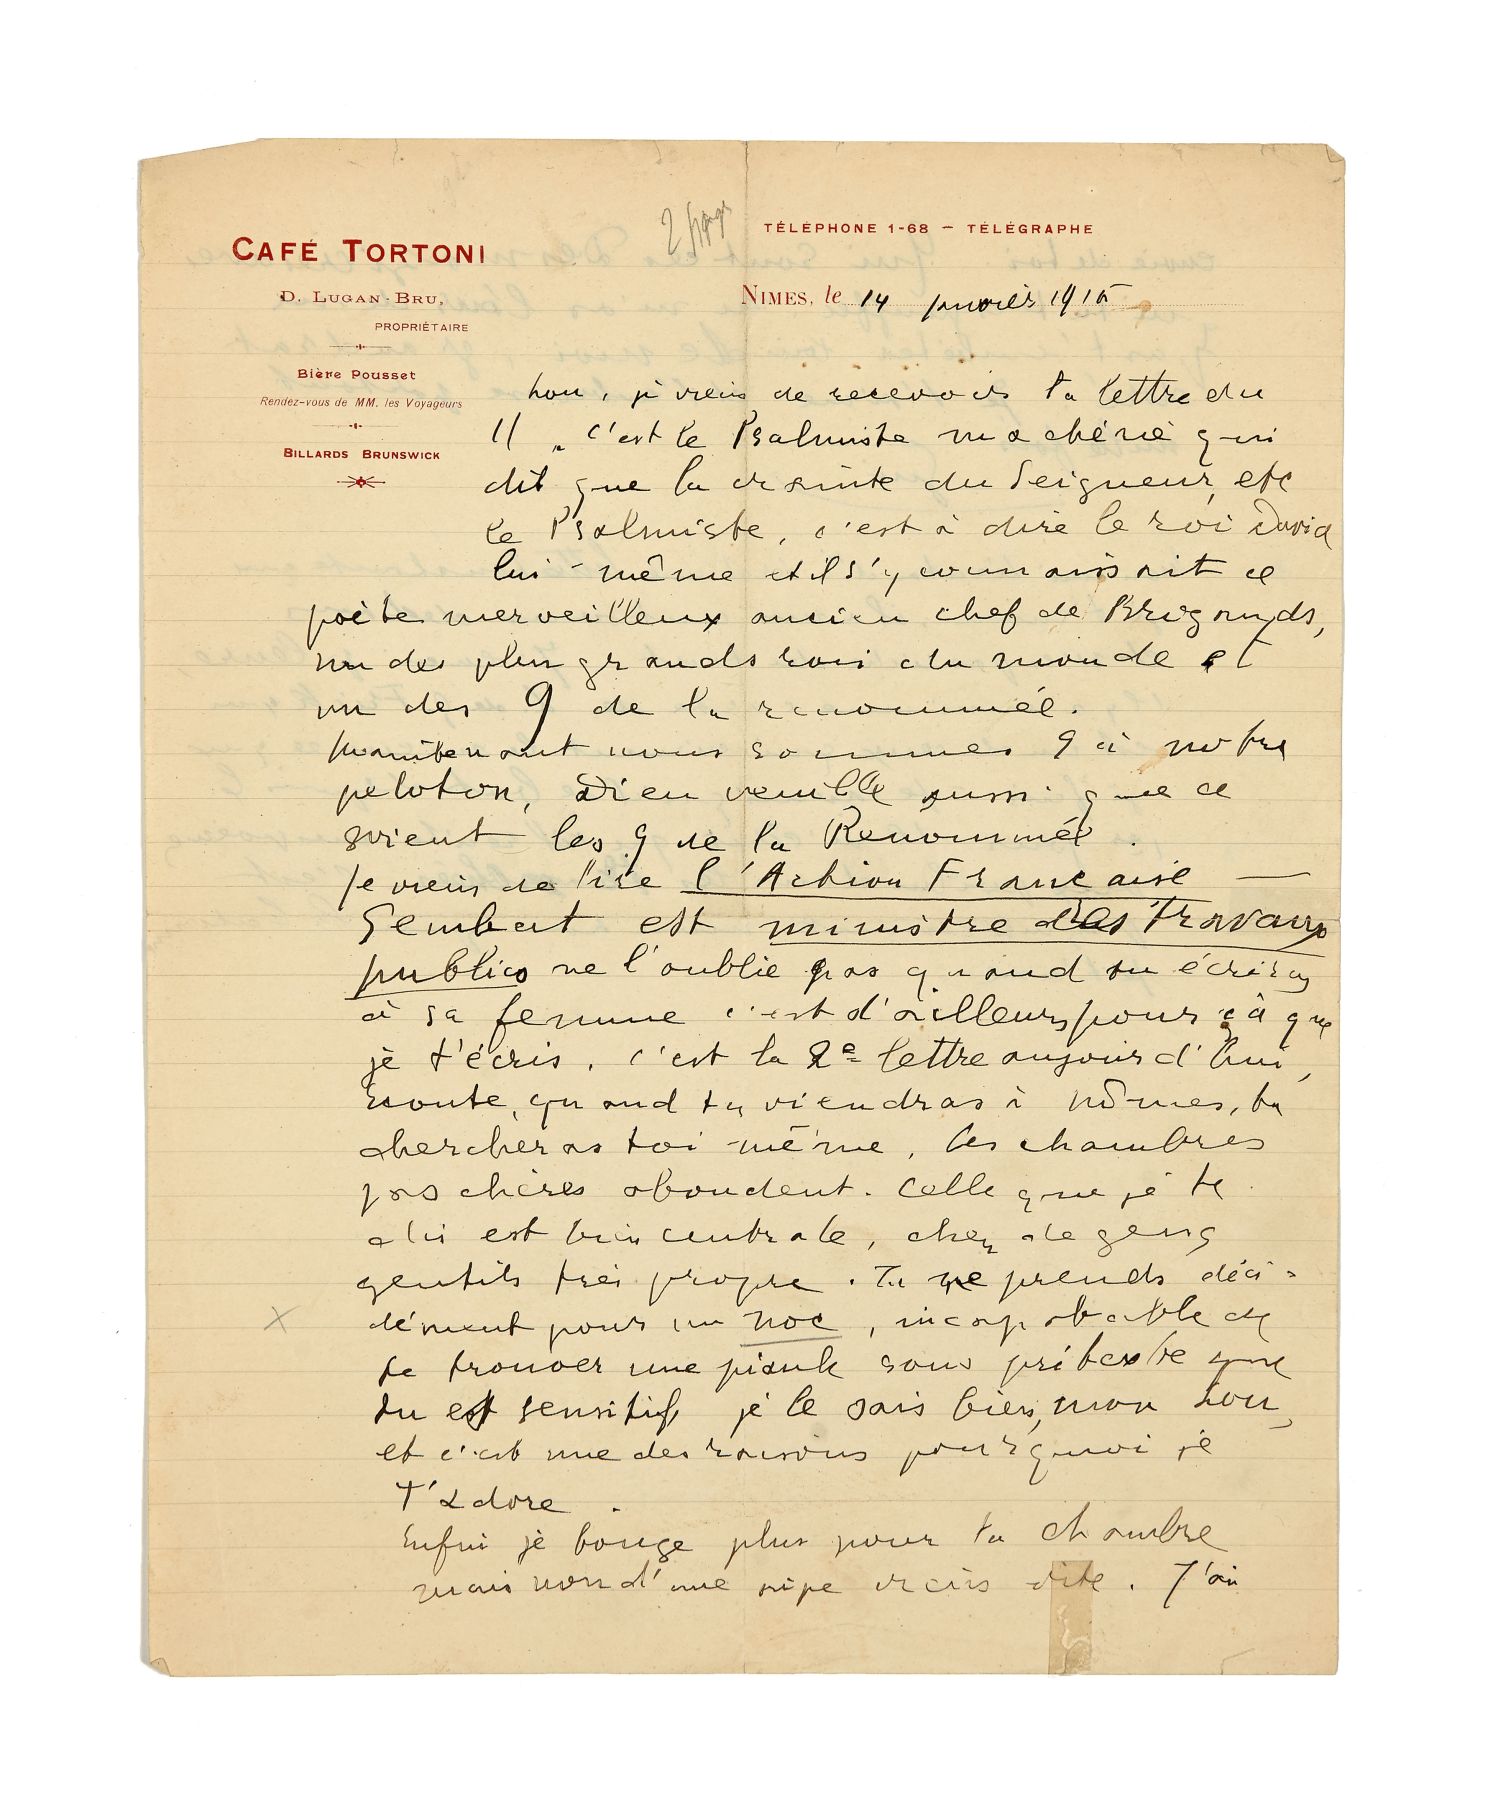 2 pages
TÉLÉPHONE 1-68 — TÉLÉGRAPHE
CAFÉ TORTONI
D. LUGAN-BRU,
PROPRIÉTAIRE
NIMES, le 14 janvier 1915
Bière Pousset
Rendez-vous de MM. les Voyageurs
BILLARDS BRUNSWICK
Lou, je viens de recevoir ta lettre du
11. c'est le Psalmiste ma chérie qui
dit que la crainte du Seigneur, etc
le Psalmiste, c'est à dire le roi David
lui-même et il s'y connaissait ce
poète merveilleux ancien chef de Brigands,
un des plus grands rois du monde et
un des 9 de la renommée.
Maintenant nous sommes 9 à notre
peloton, Dieu veuille aussi que ce
soient les 9 de la Renommée.
Je viens de lire l'Action Française —
Sembat est ministre des Travaux
publics ne l'oublie pas quand tu écriras
à sa femme c'est d'ailleurs pour çà que
je t'écris. c'est la 2e lettre aujourd'hui,
Ecoute, quand tu viendras à Nîmes, tu
chercheras toi-même, les chambres
pas chères abondent. Celle que je te
dis est bien centrale, chez de gens
gentils très propre. Tu me prends déci-
dément pour un noc, incapable de
te trouver une piaule sous prétexte que
tu est sensitif, je le sais bien, mon Lou,
et c'est une des raisons pourquoi je
t'adore.
Enfin je bouge plus pour ta chambre
mais non d'une pipe viens vite. J'ai